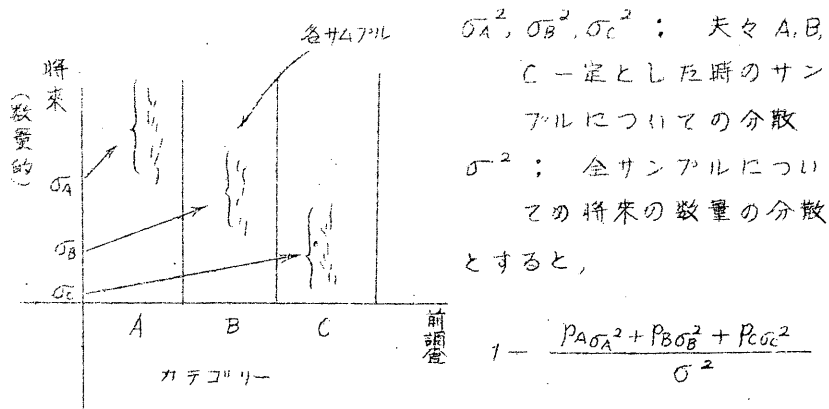 各サムプル
將来
(数量的)
σA
σB
σC
A B C
前調査
カテゴリー
σA², σB², σC² : 夫々 A, B,
C 一定とした時のサン
プルについての分散
σ² ; 全サンプルについ
ての将来の数量の分散
とすると,
1 - (PAσA² + PBσB² + PCσC²) / σ²